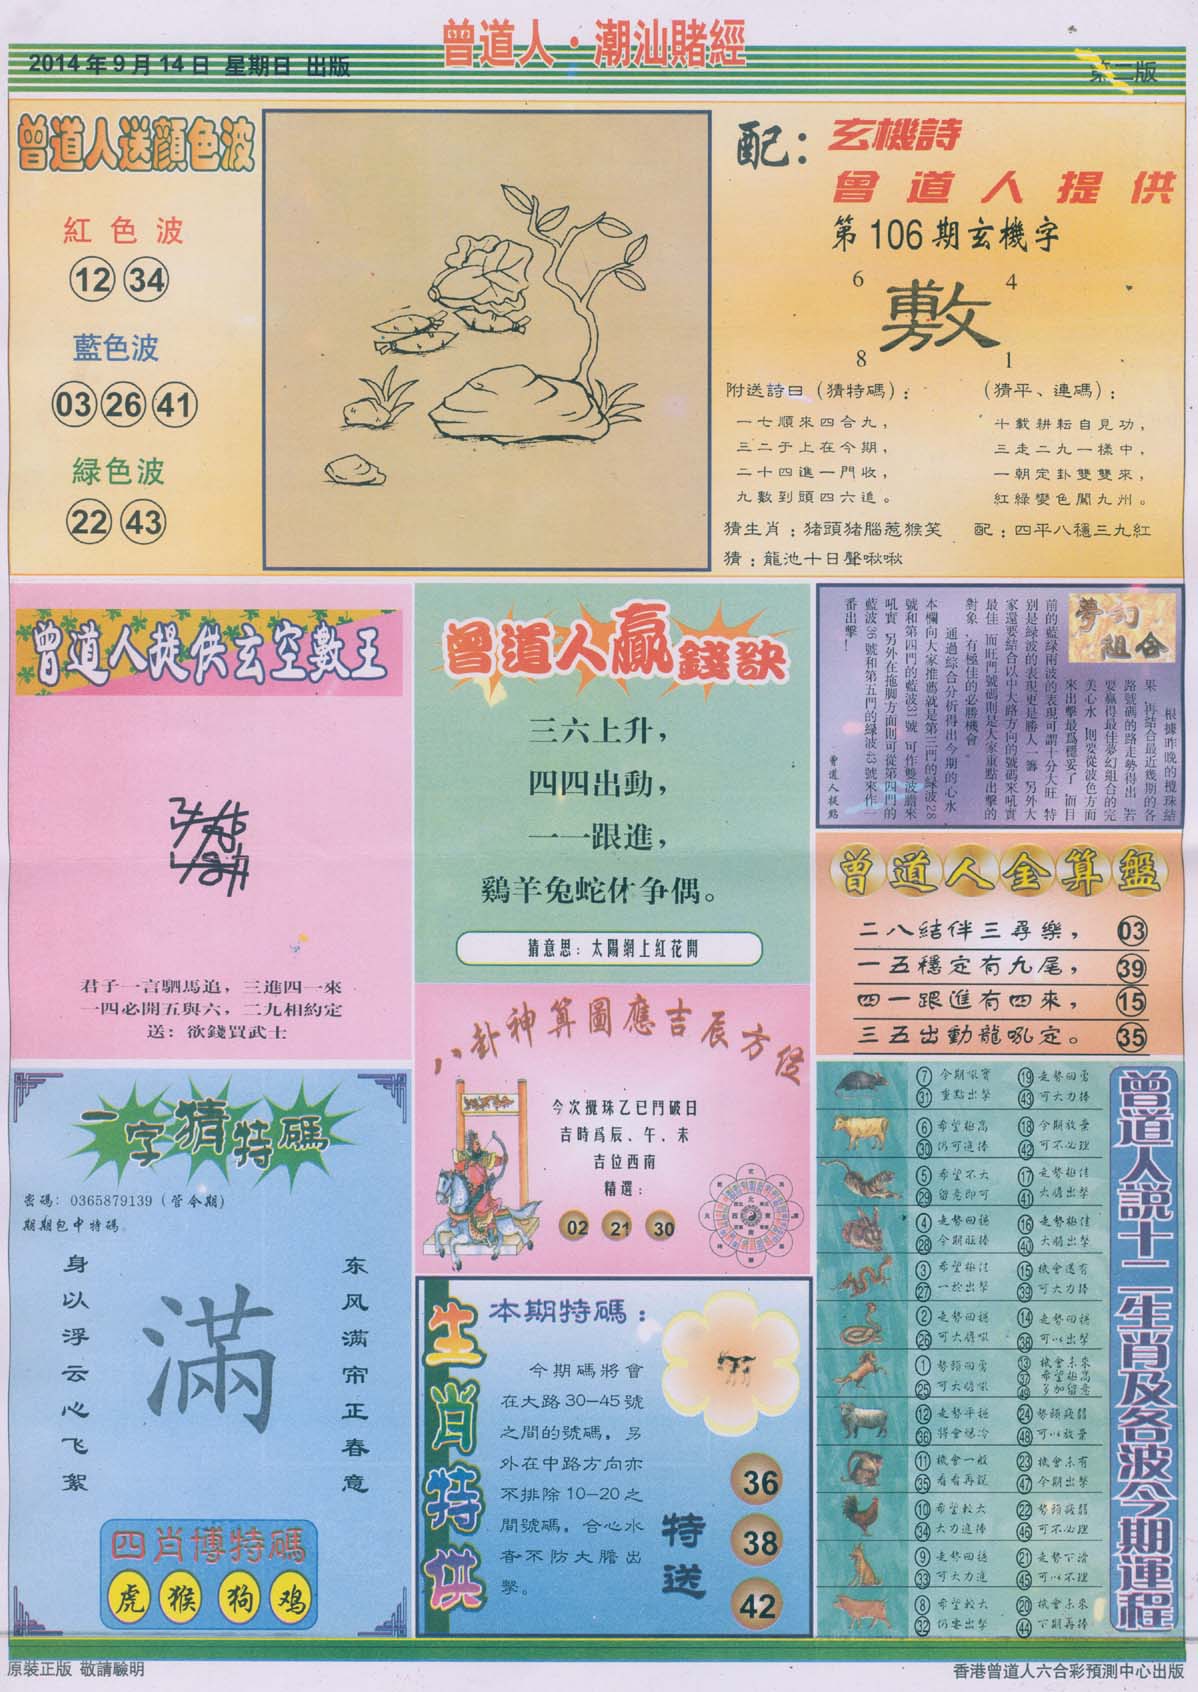 曾道人·潮汕賭經
2014年9月14日 星期日 出版
第二版
曾道人送顔色波
紅色波
12 34
藍色波
03 26 41
緑色波
22 43
配：玄機詩
曾道人提供
第106期玄機字
6 4
敷
8 1
附送詩曰（猜特碼）：
一七順來四合九，
三二于上在今期，
二十四進一門收，
九數到頭四六追。
（猜平、連碼）：
十載耕耘自見功，
三走二九一樣中，
一朝定卦雙雙來，
紅綠變色闖九州。
猜生肖：猪頭猪腦惹猴笑
配：四平八穩三九紅
猜：龍池十日聲啾啾
曾道人提供玄空數王
君子一言駟馬追，三進四一來
一四必開五與六，二九相約定
送：欲錢買武士
曾道人贏錢訣
三六上升，
四四出動，
一一跟進，
鷄羊兔蛇休争偶。
猜意思：太陽網上紅花開
夢幻組合
根據昨晚的攪珠結
果，再結合最近幾期的各
路號碼的路走勢得出，若
要贏得最佳夢幻組合的完
美心水，則要從波色方面
來出擊最爲穩妥了，而目
前的藍緑兩波的表現可謂十分大旺，特
别是緑波的表現更是勝人一籌，另外大
家還要結合以中大路方向的號碼來吼實
最佳，而旺門號碼則是大家重點出擊的
對象，有極佳的必勝機會。
通過綜合分析得出今期的心水
本欄向大家推薦就是第三門的緑波28
號和第四門的藍波31號，可作雙波膽來
吼實，另外在拖脚方面則可從第四門的
藍波36號和第五門的緑波43號來作一
番出擊！
曾道人提點
曾道人金算盤
二八結伴三尋樂， 03
一五穩定有九尾， 39
四一跟進有四來， 15
三五出動龍吼定。 35
八卦神算圖應吉辰方從
今次攪珠乙已門破日
吉時爲辰、午、未
吉位西南
精選：
02 21 30
一字猜特碼
密碼：0365879139（管今期）
期期包中特碼。
身以浮云心飞絮
滿
东风满帘正春意
四肖博特碼
虎 猴 狗 鸡
生肖特供
本期特碼：
今期碼將會
在大路30—45號
之間的號碼，另
外在中路方向亦
不排除10—20之
間號碼，合心水
者不防大膽出
擊。
特送
36
38
42
曾道人説十二生肖及各波今期運程
7 31 今期吼實 重點出擊
19 43 走勢回勇 可大力捧
6 30 希望極高 仍可追捧
18 42 今期放棄 可不必理
5 29 希望不大 留意即可
17 41 走勢極佳 大膽出擊
4 28 走勢回穩 今期旺捧
16 40 走勢極佳 大膽出擊
3 27 希望極佳 一於出擊
15 39 機會還有 可大力捧
2 26 走勢回穩 可大膽吼
14 38 走勢回穩 可以出擊
1 25 勢頭回勇 可大膽吼
13 37 49 機會未來 希望極高 多加留意
12 36 走勢平穩 將會爆冷
24 48 勢頭疲弱 可以放棄
11 35 機會一般 看看再説
23 47 機會未有 今期出擊
10 34 希望較大 大力追捧
22 46 勢頭疲弱 可不必理
9 33 走勢回穩 可大力追
21 45 走勢下滑 可以不理
8 32 希望較大 仍要出擊
20 44 機會未來 下期再捧
原裝正版 敬請驗明
香港曾道人六合彩預測中心出版